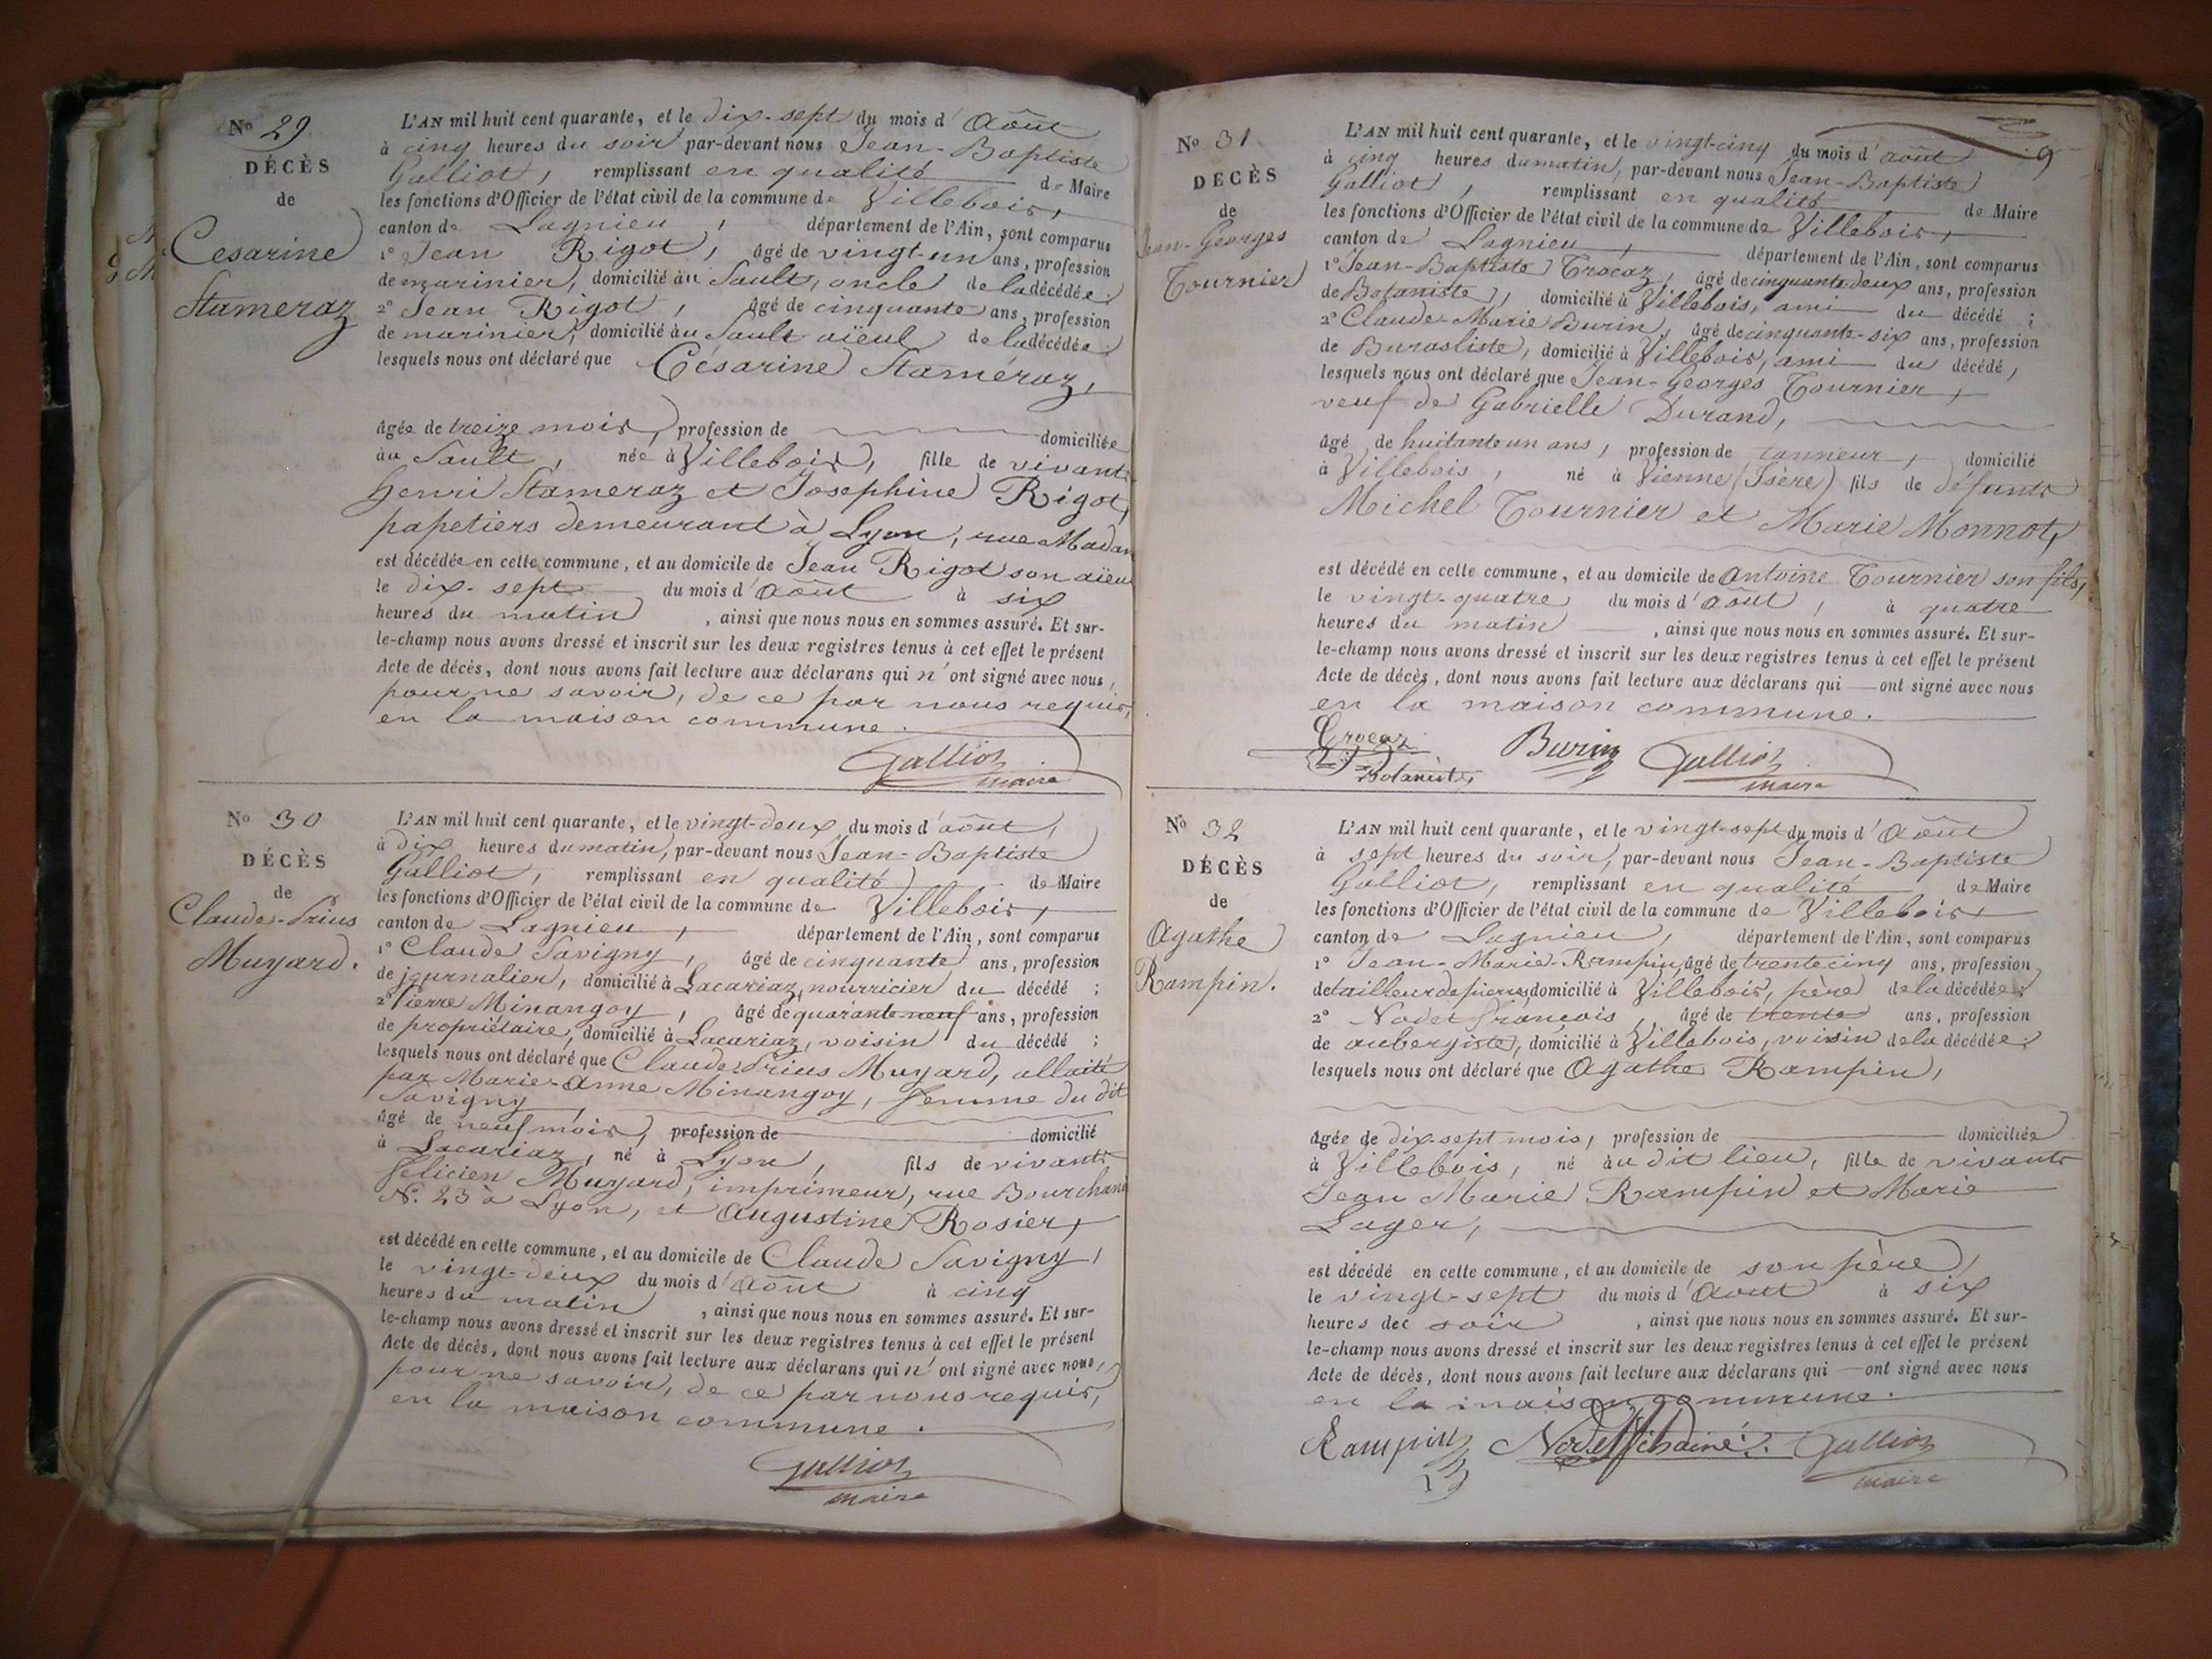 N° 29
DÉCÈS
de
Cesarine
Stameraz
L'AN mil huit cent quarante, et le dix-sept du mois d'Août
à cinq heures du soir par-devant nous Jean-Baptiste
Galliot, remplissant en qualité de Maire
les fonctions d'Officier de l'état civil de la commune de Villebois,
canton de Lagnieu, département de l'Ain, sont comparus
1° Jean Rigot, âgé de vingt-un ans, profession
de marinier, domicilié au Sault, oncle de la décédée;
2° Jean Rigot, âgé de cinquante ans, profession
de marinier, domicilié au Sault aïeul de la décédée;
lesquels nous ont déclaré que Césarine Staméraz,
âgée de treize mois, profession de domiciliée
au Sault, née à Villebois, fille de vivants
Henri Stameraz et Josephine Rigot,
papetiers demeurant à Lyon, rue Madam
est décédée en cette commune, et au domicile de Jean Rigot son aïeu
le dix-sept du mois d'Août à six
heures du matin, ainsi que nous nous en sommes assuré. Et sur-
le-champ nous avons dressé et inscrit sur les deux registres tenus à cet effet le présent
Acte de décès, dont nous avons fait lecture aux déclarans qui n'ont signé avec nous,
pour ne savoir, de ce par nous requis,
en la maison commune.
Galliot
maire
N° 30
DÉCÈS
de
Claude-Prius
Muyard.
L'AN mil huit cent quarante, et le vingt-deux du mois d'août,
à dix heures du matin, par-devant nous Jean-Baptiste
Galliot, remplissant en qualité de Maire
les fonctions d'Officier de l'état civil de la commune de Villebois,
canton de Lagnieu, département de l'Ain, sont comparus
1° Claude Savigny, âgé de cinquante ans, profession
de journalier, domicilié à Lacariaz, nourricier du décédé;
2° Pierre Minangoy, âgé de quarante-neuf ans, profession
de propriétaire, domicilié à Lacariaz, voisin du décédé;
lesquels nous ont déclaré que Claude-Prius Muyard, allaité
par Marie-Anne Minangoy, femme du dit
Savigny
âgé de neuf mois, profession de domicilié
à Lacariaz, né à Lyon, fils de vivants
Félicien Muyard, imprimeur, rue Bourchanin
N. 23 à Lyon, et Augustine Rosier,
est décédé en cette commune, et au domicile de Claude Savigny,
le vingt-deux du mois d'Août à cinq
heures du matin, ainsi que nous nous en sommes assuré. Et sur-
le-champ nous avons dressé et inscrit sur les deux registres tenus à cet effet le présent
Acte de décès, dont nous avons fait lecture aux déclarans qui n'ont signé avec nous,
pour ne savoir, de ce par nous requis,
en la maison commune.
Galliot
maire
9
N° 31
DÉCÈS
de
Jean-Georges
Tournier
L'AN mil huit cent quarante, et le vingt-cinq du mois d'août
à cinq heures du matin, par-devant nous Jean-Baptiste
Galliot, remplissant en qualité de Maire
les fonctions d'Officier de l'état civil de la commune de Villebois,
canton de Lagnieu, département de l'Ain, sont comparus
1° Jean-Baptiste Trocaz, âgé de cinquante-deux ans, profession
de Botaniste, domicilié à Villebois, ami du décédé;
2° Claude-Marie Burin, âgé de cinquante-six ans, profession
de Buraliste, domicilié à Villebois, ami du décédé,
lesquels nous ont déclaré que Jean-Georges Tournier,
veuf de Gabrielle Durand,
âgé de huitante un ans, profession de tanneur, domicilié
à Villebois, né à Vienne (Isère) fils de défunts
Michel Tournier et Marie Monnot,
est décédé en cette commune, et au domicile de Antoine Tournier son fils,
le vingt-quatre du mois d'Août, à quatre
heures du matin, ainsi que nous nous en sommes assuré. Et sur-
le-champ nous avons dressé et inscrit sur les deux registres tenus à cet effet le présent
Acte de décès, dont nous avons fait lecture aux déclarans qui ont signé avec nous
en la maison commune.
Trocaz Burin Galliot
Botaniste maire
N° 32
DÉCÈS
de
Agathe
Rampin.
L'AN mil huit cent quarante, et le vingt-sept du mois d'Août
à sept heures du soir, par-devant nous Jean-Baptiste
Galliot, remplissant en qualité de Maire
les fonctions d'Officier de l'état civil de la commune de Villebois,
canton de Lagnieu, département de l'Ain, sont comparus
1° Jean-Marie-Rampin, âgé de trente cinq ans, profession
de tailleur de pierres domicilié à Villebois, père de la décédée;
2° Nodet François, âgé de trente ans, profession
de aubergiste, domicilié à Villebois, voisin de la décédée;
lesquels nous ont déclaré que Agathe Rampin,
âgée de dix-sept mois, profession de domiciliée
à Villebois, né au dit lieu, fille de vivants
Jean Marie Rampin et Marie
Lager,
est décédé en cette commune, et au domicile de son père,
le vingt-sept du mois d'Août à six
heures du soir, ainsi que nous nous en sommes assuré. Et sur-
le-champ nous avons dressé et inscrit sur les deux registres tenus à cet effet le présent
Acte de décès, dont nous avons fait lecture aux déclarans qui ont signé avec nous
en la maison commune.
Rampin Nodet Galliot
maire